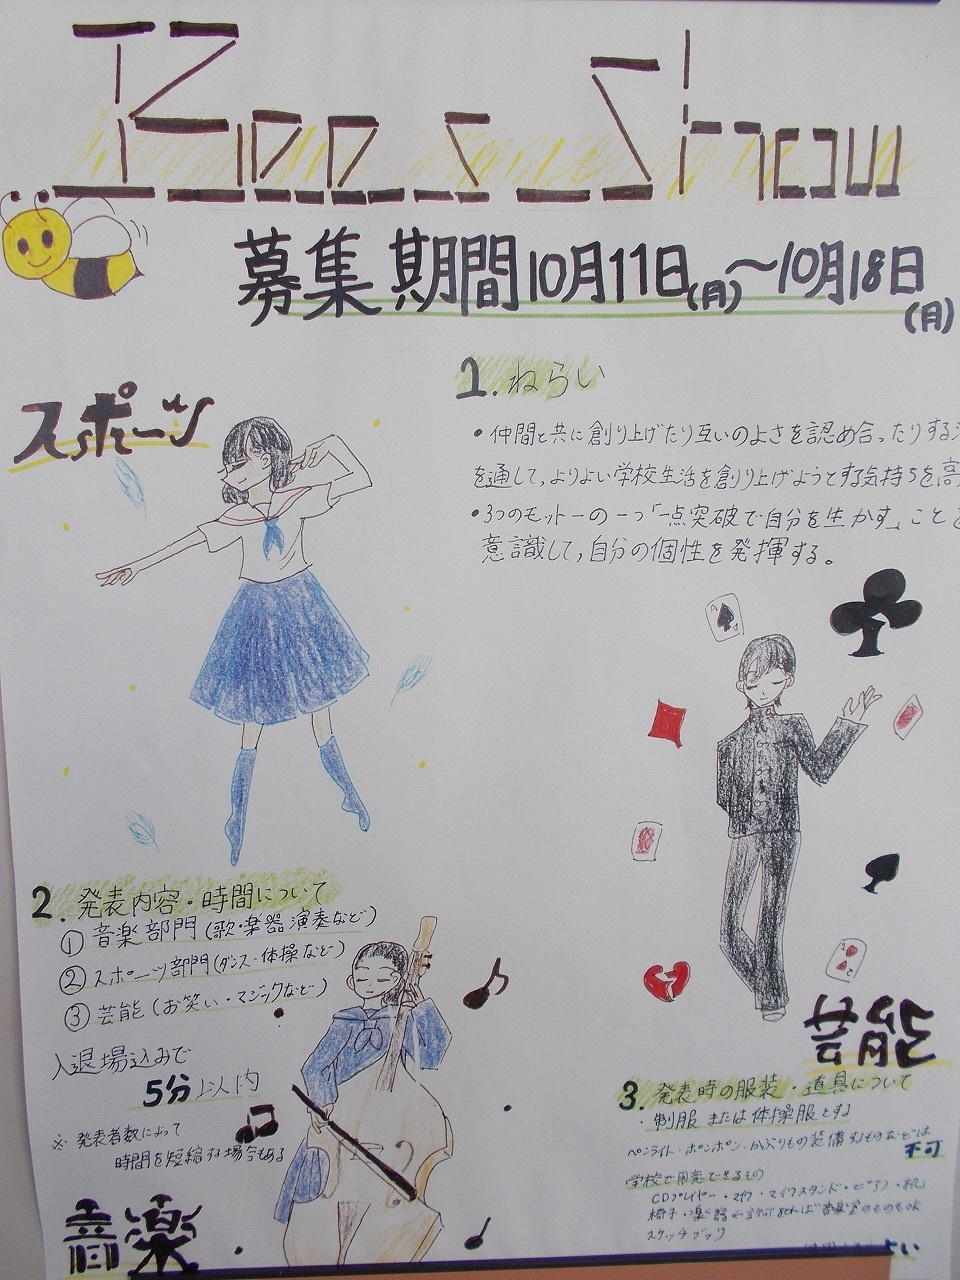 Bees Show
募集期間10月11日(月)〜10月18日(月)
スポーツ
1. ねらい
・仲間と共に創り上げたり互いのよさを認め合ったりする
を通して、よりよい学校生活を創り上げようとする気持ちを高
・3つのモットーの一つ「一点突破で自分を生かす」こと
意識して、自分の個性を発揮する。
A
2. 発表内容・時間について
① 音楽部門(歌・楽器演奏など)
② スポーツ部門(ダンス・体操など)
③ 芸能(お笑い・マジックなど)
入退場込みで
5分以内
※ 発表者数によって
時間を短縮する場合もある
音楽
芸能
3. 発表時の服装・道具について
・制服または体操服とする
ペンライト・ポンポン・かぶりもの装備するものなどは
不可
学校で用意できるもの
CDプレイヤー・マイク・マイクスタンド・ピアノ・机
椅子・楽器
スケッチブック